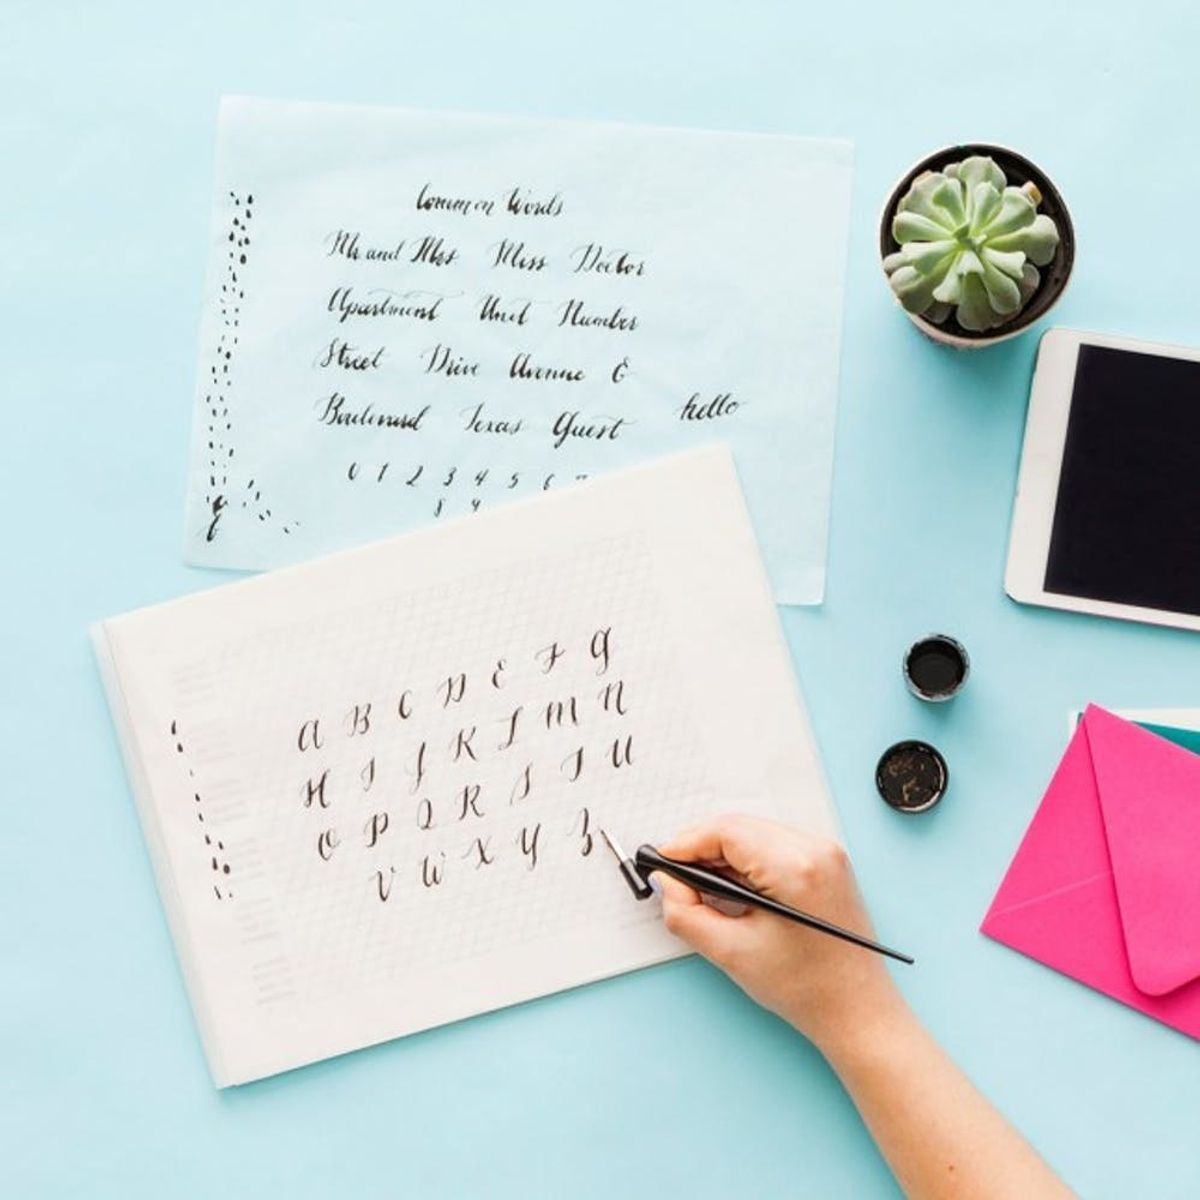 Common Words
Mr and Mrs Miss Doctor
Apartment Unit Number
Street Drive Avenue &
Boulevard Texas Guest hello
0 1 2 3 4 5 6 7
8 9
A B C D E F G
H I J K L M N
O P Q R S T U
V W X Y Z